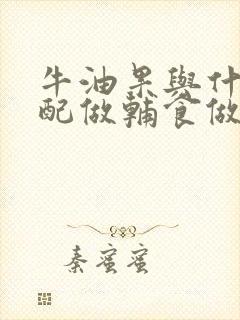 牛油果與什
配做輔食做
秦蜜蜜